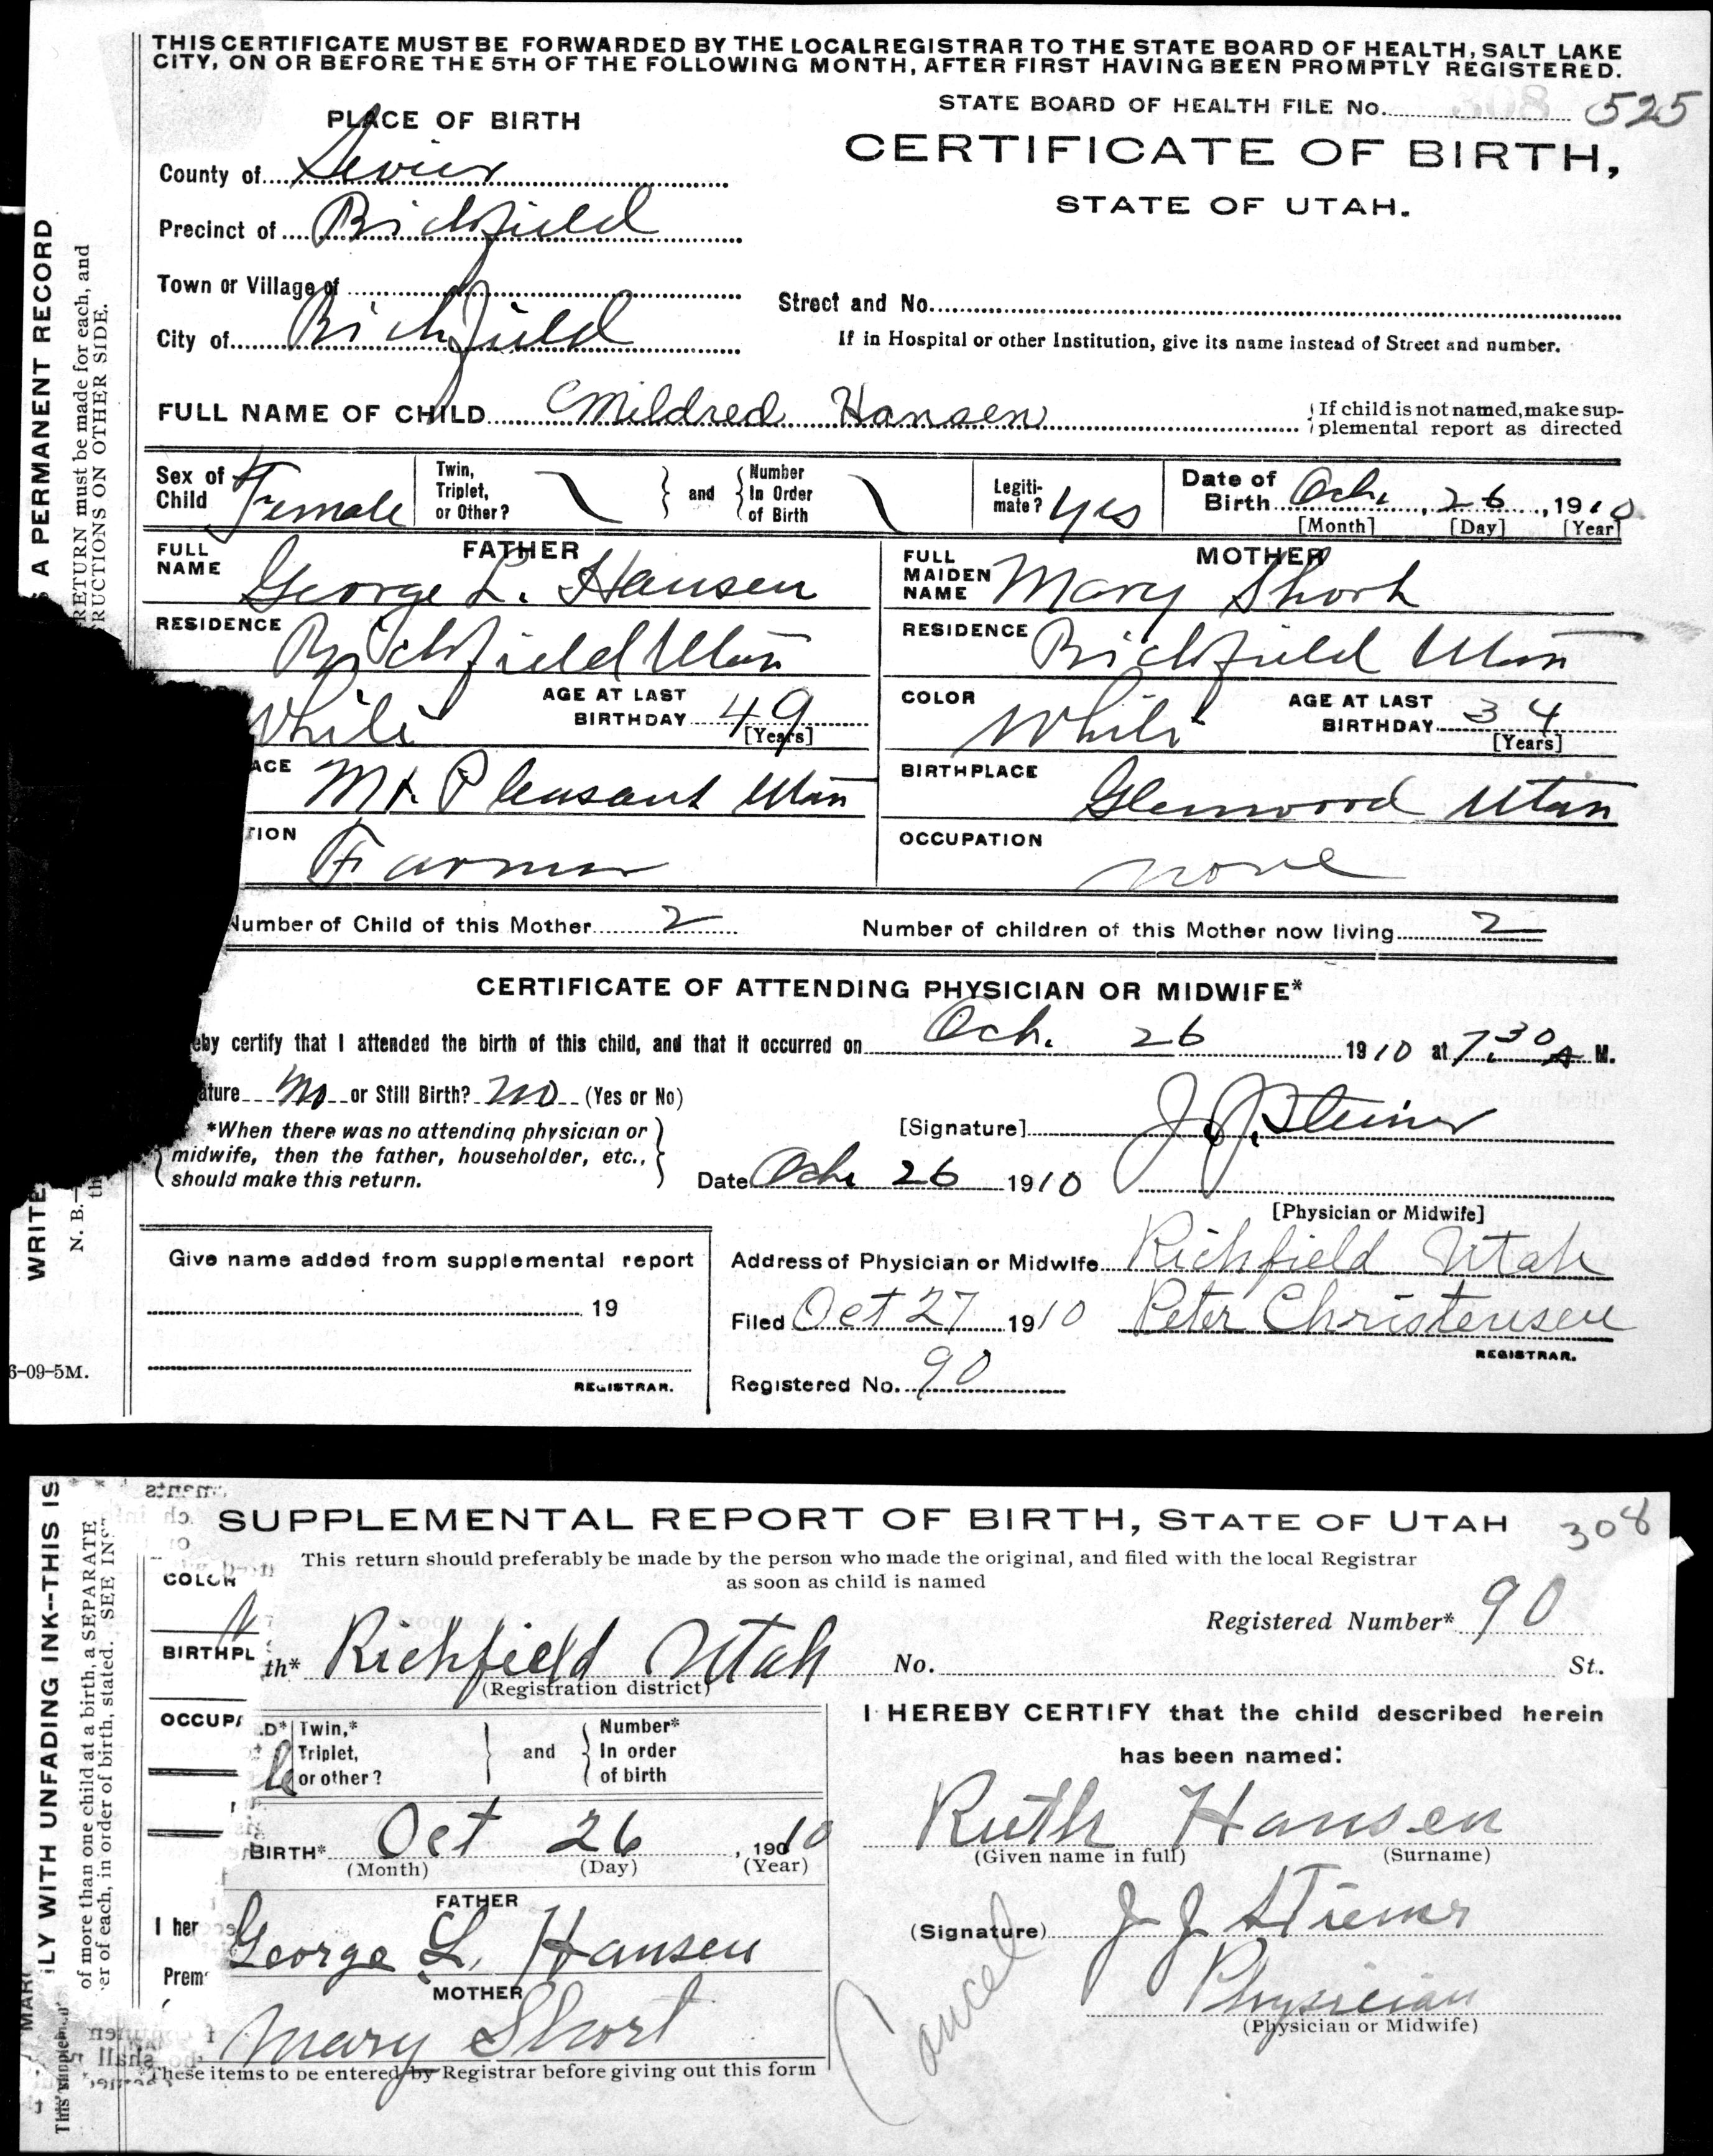 THIS CERTIFICATE MUST BE FORWARDED BY THE LOCAL REGISTRAR TO THE STATE BOARD OF HEALTH, SALT LAKE
CITY, ON OR BEFORE THE 5TH OF THE FOLLOWING MONTH, AFTER FIRST HAVING BEEN PROMPTLY REGISTERED.
STATE BOARD OF HEALTH FILE No. 525
PLACE OF BIRTH
CERTIFICATE OF BIRTH,
STATE OF UTAH.
County of Sevier
Precinct of Richfield
Town or Village of
Street and No.
City of Richfield
If in Hospital or other Institution, give its name instead of Street and number.
FULL NAME OF CHILD Mildred Hansen
If child is not named, make sup-
plemental report as directed
Sex of Child Female
Twin, Triplet, or Other?
and
Number In Order of Birth
Legiti-mate? Yes
Date of Birth Oct. 26, 1910
[Month] [Day] [Year]
FATHER
FULL NAME George L. Hansen
RESIDENCE Richfield Utah
White
AGE AT LAST BIRTHDAY 49
[Years]
ACE Mt. Pleasant Utah
TION Farmer
MOTHER
FULL MAIDEN NAME Mary Short
RESIDENCE Richfield Utah
COLOR White
AGE AT LAST BIRTHDAY 34
[Years]
BIRTHPLACE Glenwood Utah
OCCUPATION none
Number of Child of this Mother 2
Number of children of this Mother now living 2
CERTIFICATE OF ATTENDING PHYSICIAN OR MIDWIFE*
eby certify that I attended the birth of this child, and that it occurred on Oct. 26 1910 at 7.30 A M.
ature No or Still Birth? no (Yes or No)
*When there was no attending physician or
midwife, then the father, householder, etc.,
should make this return.
[Signature] J. J. Steiner
Date Oct 26 1910
[Physician or Midwife]
Give name added from supplemental report
19
REGISTRAR.
Address of Physician or Midwife Richfield Utah
Filed Oct 27 1910 Peter Christensen
REGISTRAR.
Registered No. 90
6-09-5M.
A PERMANENT RECORD
RETURN must be made for each, and
RUCTIONS ON OTHER SIDE.
WRITE
N. B.—
th
SUPPLEMENTAL REPORT OF BIRTH, STATE OF UTAH
308
This return should preferably be made by the person who made the original, and filed with the local Registrar
as soon as child is named
Registered Number* 90
COLOR
BIRTHPL
th* Richfield Utah
(Registration district)
No. St.
OCCUPA
D* Twin,* Triplet, or other?
le
and
Number* In order of birth
BIRTH* Oct 26, 1910
(Month) (Day) (Year)
FATHER
George L. Hansen
MOTHER
Mary Short
*These items to be entered by Registrar before giving out this form
I her
Prem
I HEREBY CERTIFY that the child described herein
has been named:
Ruth Hansen
(Given name in full) (Surname)
(Signature) J J Steiner
Physician
(Physician or Midwife)
Cancel
LY WITH UNFADING INK--THIS IS
of more than one child at a birth, a SEPARATE
er of each, in order of birth, stated. SEE INST